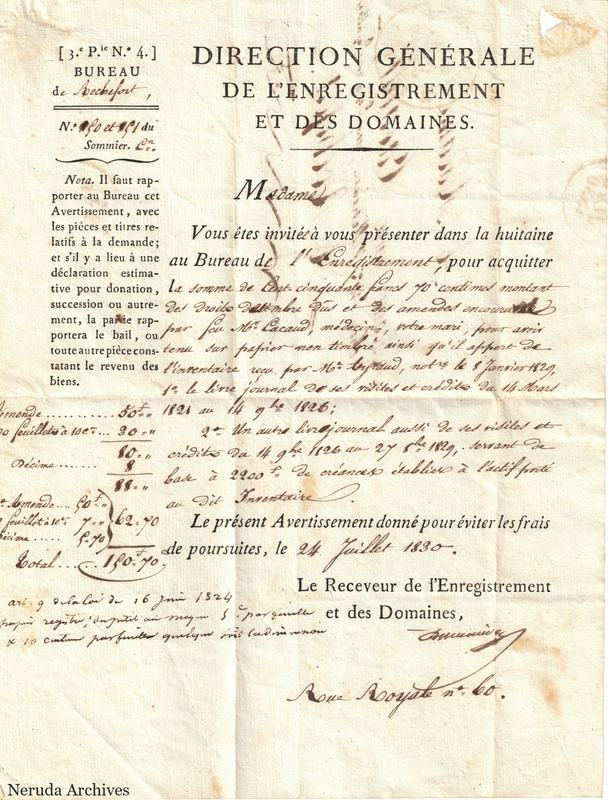 [ 3.e P.ie N.o 4. ]
BUREAU
de Rochefort,
N.o 150 et 151 du
Sommier. C.n
Nota. Il faut rap-
porter au Bureau cet
Avertissement, avec
les pièces et titres re-
latifs à la demande;
et s'il y a lieu à une
déclaration estima-
tive pour donation,
succession ou autre-
ment, la partie rap-
portera le bail, ou
toute autre pièce cons-
tatant le revenu des
biens.
Amende .......... 50f „
feuillets à 10c... 30 = „
80 = „
Décime...... 8
88 = „
Amende.... 50f „
feuillets à 10c. 7 = „ 62=70
Décime..... 5.70
Total..... 150f.70
art. 9 de la loi du 16 juin 1824
DIRECTION GÉNÉRALE
DE L'ENREGISTREMENT
ET DES DOMAINES.
Madame
Vous êtes invitée à vous présenter dans la huitaine
au Bureau de l'Enregistrement, pour acquitter
la somme de Cent cinquante francs 70 centimes montant
des droits de timbre dus et des amendes encourues
par feu Mr. Cacaud, médecin, votre mari, pour avoir
tenu sur papier non timbré ainsi qu'il appert de
l'inventaire reçu par Me. notre le 8 Janvier 1829,
1o le livre journal de ses visites et crédits du 14 Mars
1821 au 14 9bre 1826;
2o Un autre livre journal aussi de ses visites et
crédits du 14 9bre 1826 au 27 8bre 1829, servant de
base à 2200f de créances établies à l'actif porté
au dit Inventaire.
Le présent Avertissement donné pour éviter les frais
de poursuites, le 24 Juillet 1830.
Le Receveur de l'Enregistrement
et des Domaines,
Rue Royale no. 60.
Neruda Archives